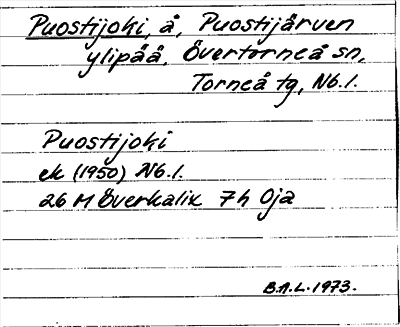 Puostijoki, å, Puostijärven
ylipää, Övertorneå sn,
Torneå tg, Nb.l.
Puostijoki
ek (1950) Nb.l.
26 M Överkalix 7h Oja
B.A.L. 1973.